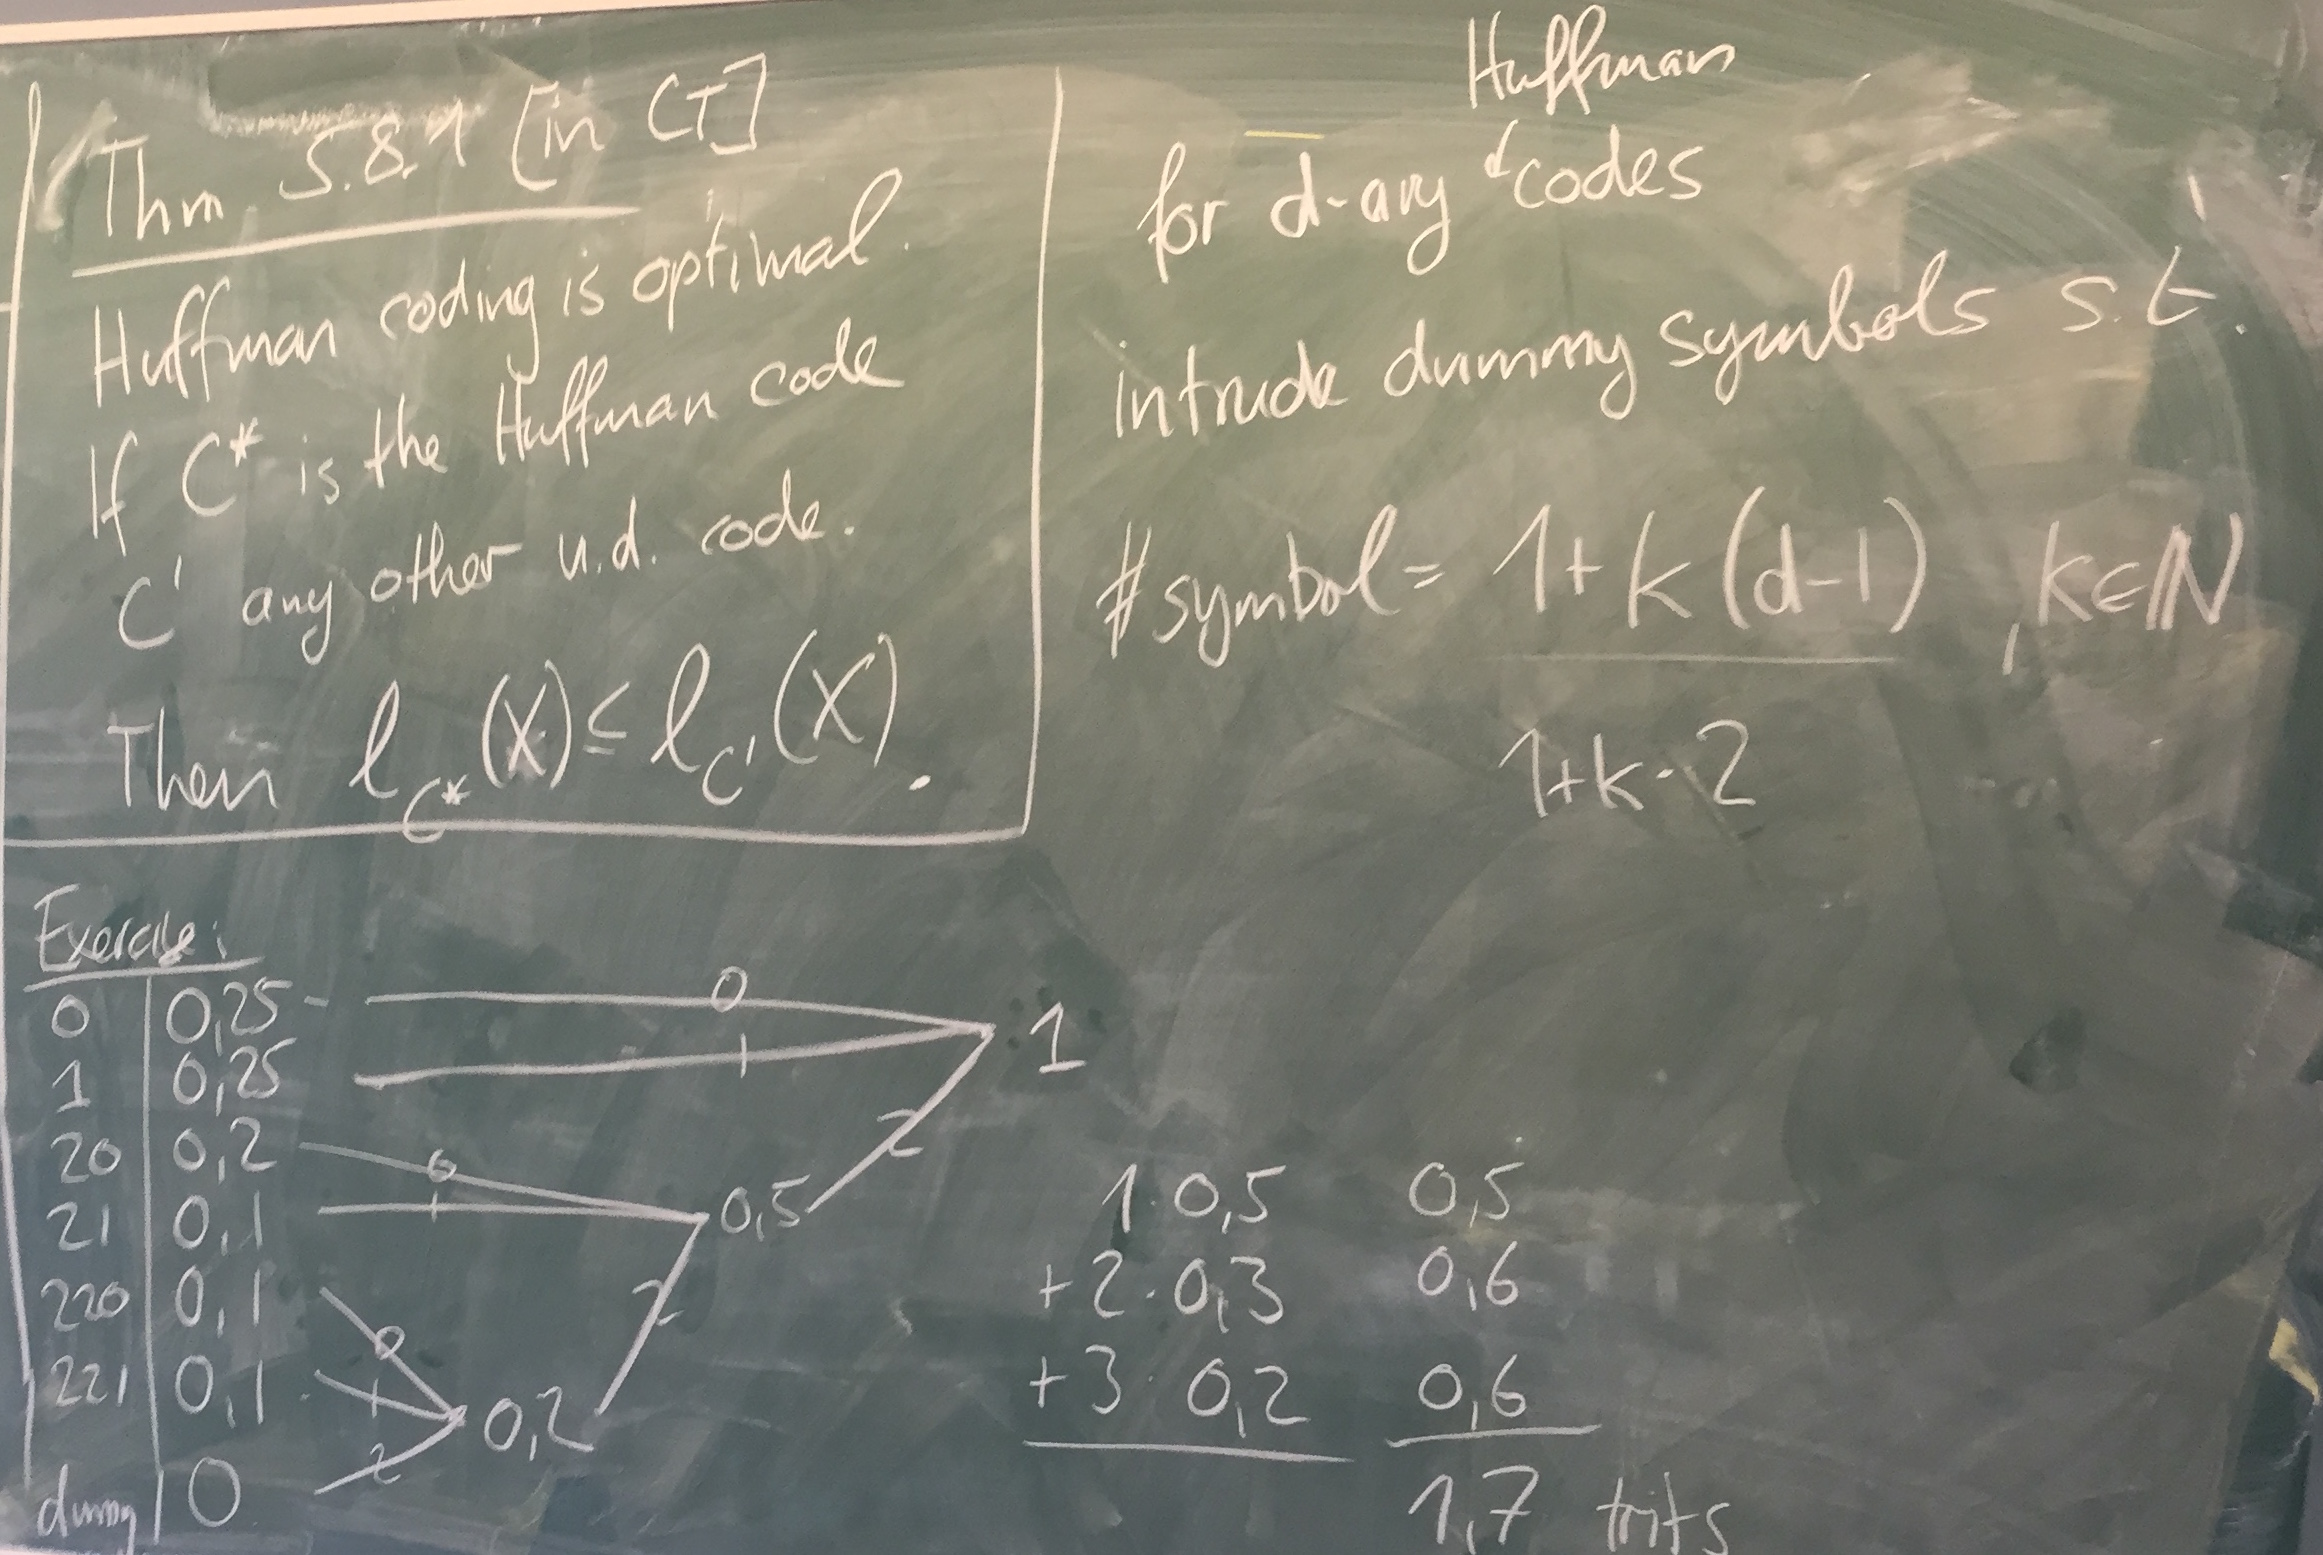 Thm. 5.8.1 [in CT]
Huffman coding is optimal.
If C* is the Huffman code
C' any other u.d. code.
Then ℓ_C*(X) ≤ ℓ_C'(X).
Huffman
for d-ary codes
intrude dummy symbols s.t.
#symbol = 1+k(d-1), k∈ℕ
1+k·2
Exercise:
0 | 0,25 0
1 | 0,25 1
1
20 | 0,2 0
2
21 | 0,1 1
0,5
220 | 0,1 0
2
221 | 0,1 1
0,2
dummy | 0 2
1·0,5 0,5
+2·0,3 0,6
+3·0,2 0,6
1,7 trits